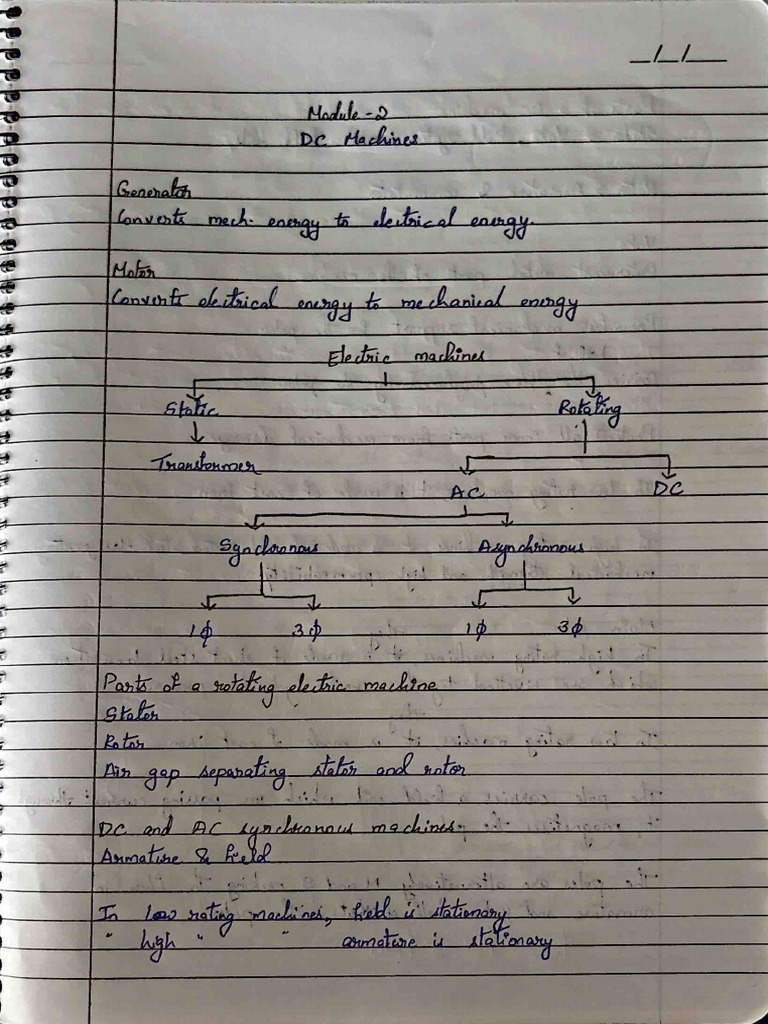 _/_/_
Module-2
DC Machines
Generator
Converts mech. energy to electrical energy.
Motor
Converts electrical energy to mechanical energy
Electric machines
Static Rotating
Transformer
AC DC
Synchronous Asynchronous
1ϕ 3ϕ 1ϕ 3ϕ
Parts of a rotating electric machine
Stator
Rotor
Air gap separating stator and rotor
DC and AC synchronous machines
Armature & field
In low rating machines, field is stationary
" high " " armature is stationary